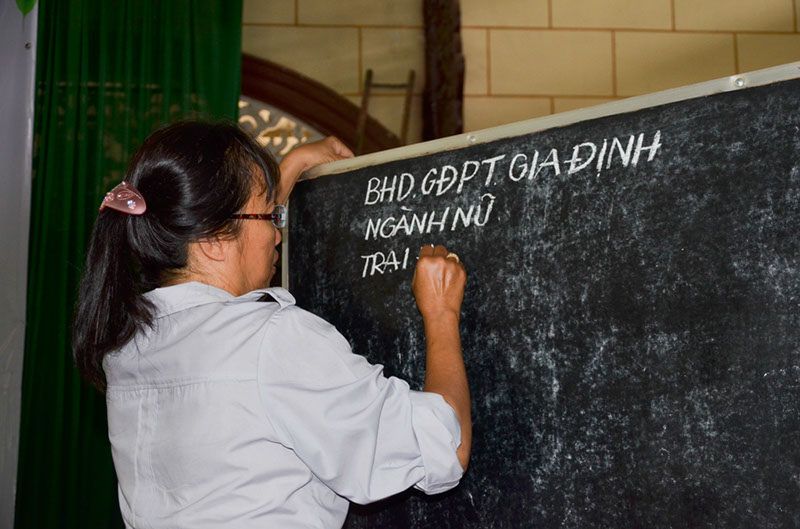 BHD. GĐPT. GIA ĐỊNH
NGÀNH NỮ
TRẠI